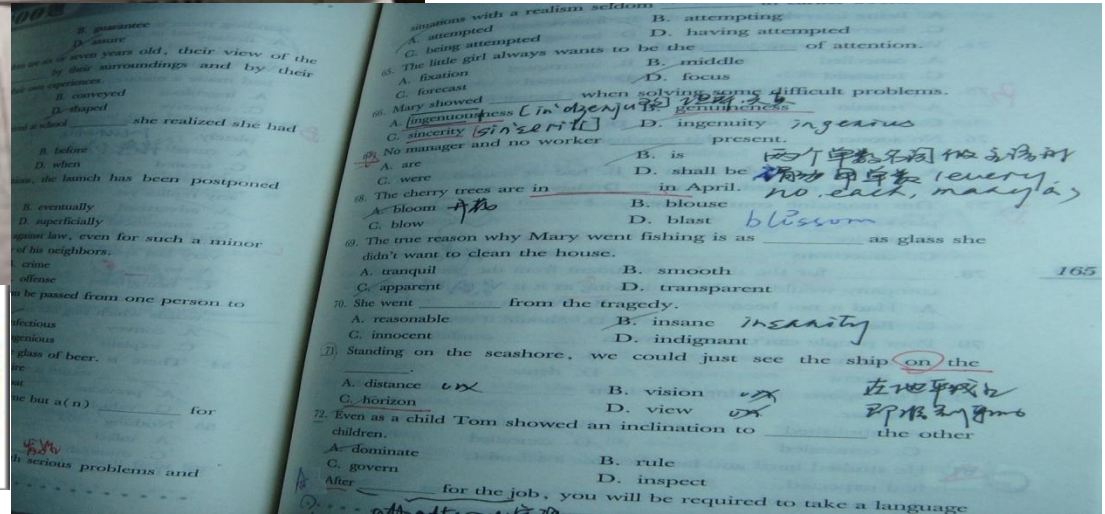 B. guarantee
D. assure
six or seven years old, their view of the
by their surroundings and by their
own experiences.
B. conveyed
D. shaped
school she realized she had
B. before
D. when
the launch has been postponed
B. eventually
D. superficially
against law, even for such a minor
of his neighbors.
crime
offense
be passed from one person to
glass of beer.
but a(n) for
serious problems and
situations with a realism seldom
A. attempted
B. attempting
C. being attempted
D. having attempted
65. The little girl always wants to be the of attention.
A. fixation
B. middle
C. forecast
D. focus
66. Mary showed when solving some difficult problems.
A. ingenuousness
genuineness
C. sincerity
D. ingenuity
67. No manager and no worker present.
A. are
B. is
C. were
D. shall be
两个单数名词做主语时
用单数 (every,
no, each, many a)
68. The cherry trees are in in April.
A. bloom 开花
B. blouse
C. blow
D. blast blossom
69. The true reason why Mary went fishing is as as glass she
didn't want to clean the house.
A. tranquil
B. smooth
165
C. apparent
D. transparent
70. She went from the tragedy.
A. reasonable
B. insane insanity
C. innocent
D. indignant
71. Standing on the seashore, we could just see the ship on the
A. distance
B. vision
在地平线上
C. horizon
D. view
72. Even as a child Tom showed an inclination to the other
children.
A. dominate
B. rule
C. govern
D. inspect
After for the job, you will be required to take a language